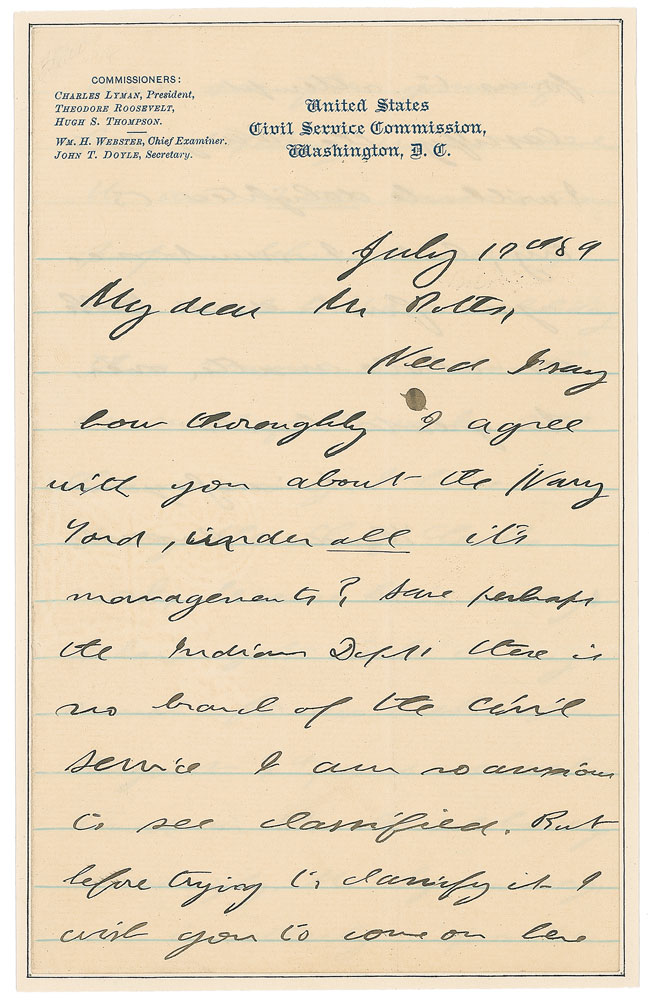 COMMISSIONERS:
CHARLES LYMAN, President,
THEODORE ROOSEVELT,
HUGH S. THOMPSON.
WM. H. WEBSTER, Chief Examiner.
JOHN T. DOYLE, Secretary.
United States
Civil Service Commission,
Washington, D. C.
July 17th 89
My dear Mr Potts,
Need I say
how thoroughly I agree
with you about the Navy
Yard, under all it's
managements? Save perhaps
the Indian Dept. there is
no branch of the civil
service I am so anxious
to see classified. But
before trying to classify it I
wish you to come on here